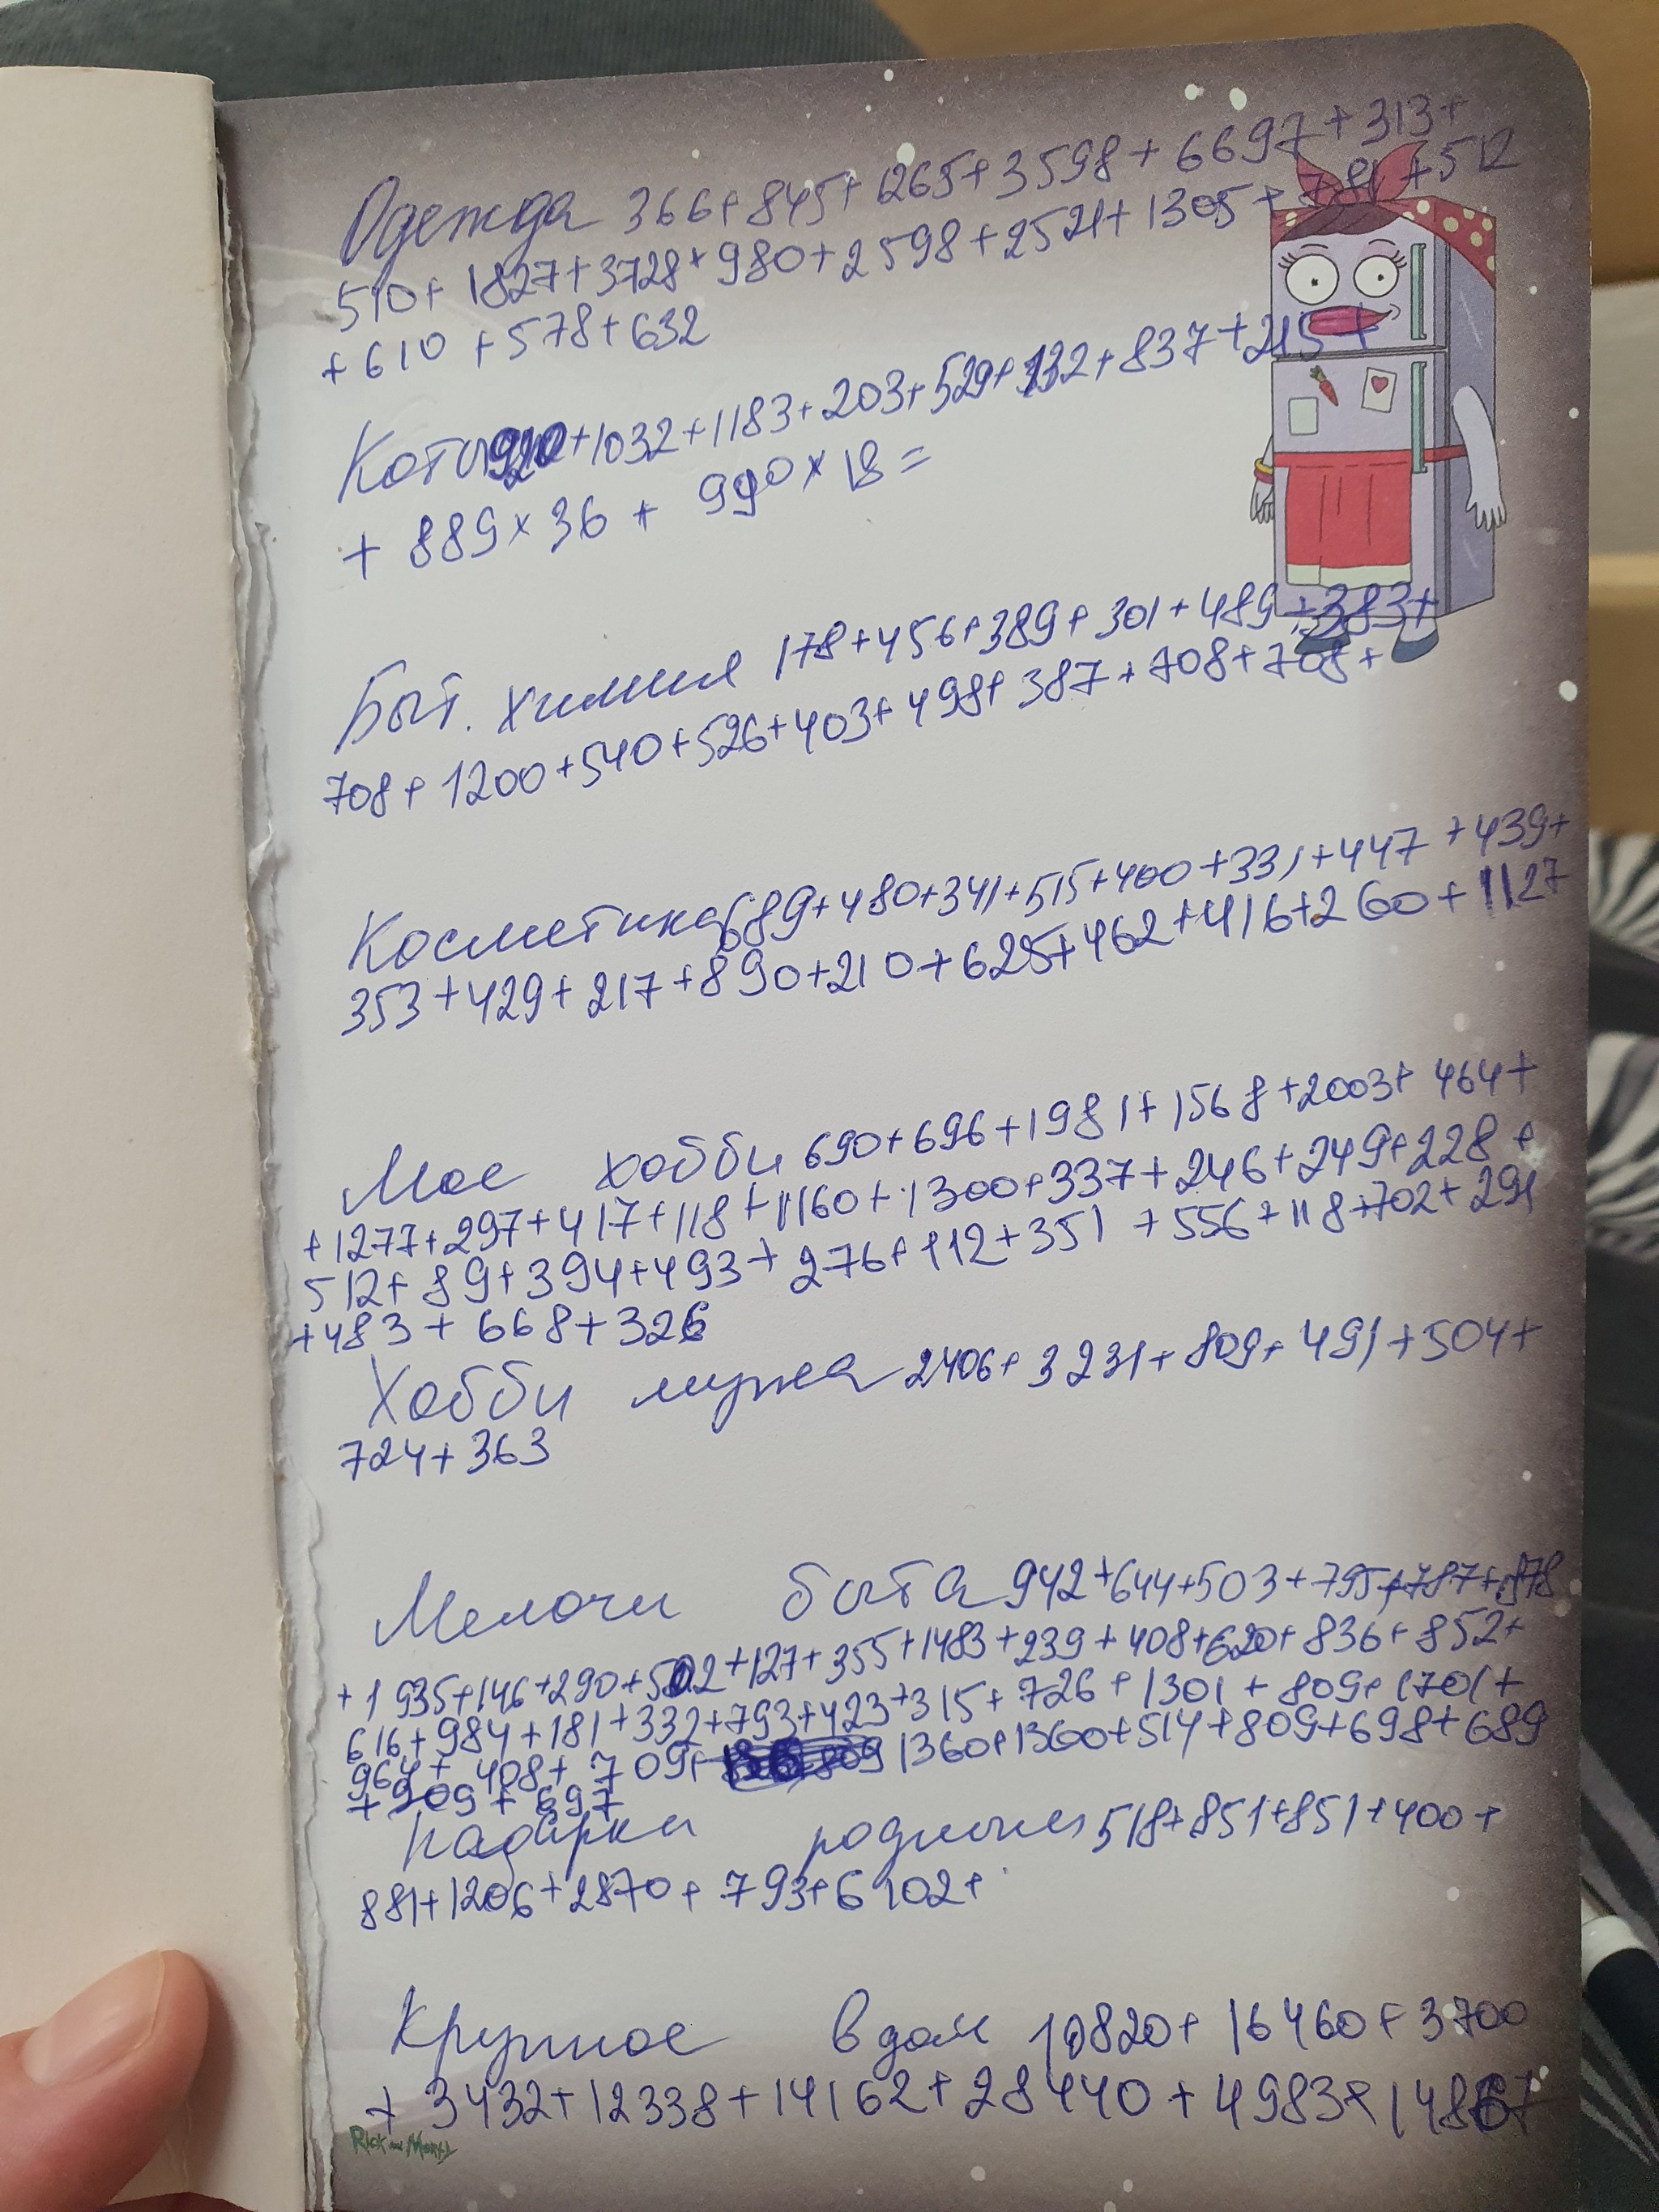 Одежда 366+845+1265+3598+6697+313+
510+1827+3728+980+2598+2521+1305+781+512
+610+578+632
Коты 920+1032+1183+203+529+132+837+215+
+889×36+990×18=
Быт. химия 178+456+389+301+489+383+
708+1200+540+526+403+498+387+708+708+
Косметика 689+480+341+515+400+331+447+439+
353+429+217+890+210+625+462+416+260+1127
Мое хобби 690+696+1981+1568+2003+464+
+1277+297+417+118+1160+1300+337+246+249+228+
512+89+394+493+276+112+351+556+118+702+291
+483+668+326
Хобби мужа 2406+3231+809+491+504+
724+363
Мелочи быта 942+644+503+795+787+878
+1935+146+290+502+127+355+1483+239+408+620+836+852+
616+984+181+332+793+423+315+726+1301+809+1701+
964+408+709+ 1360+1360+514+809+698+689
+909+697
Подарки родным 518+851+851+400+
881+1206+2870+793+6102+
Крупное в дом 10820+16460+3700
+3432+12338+14162+28440+4983+14867
Rick and Morty